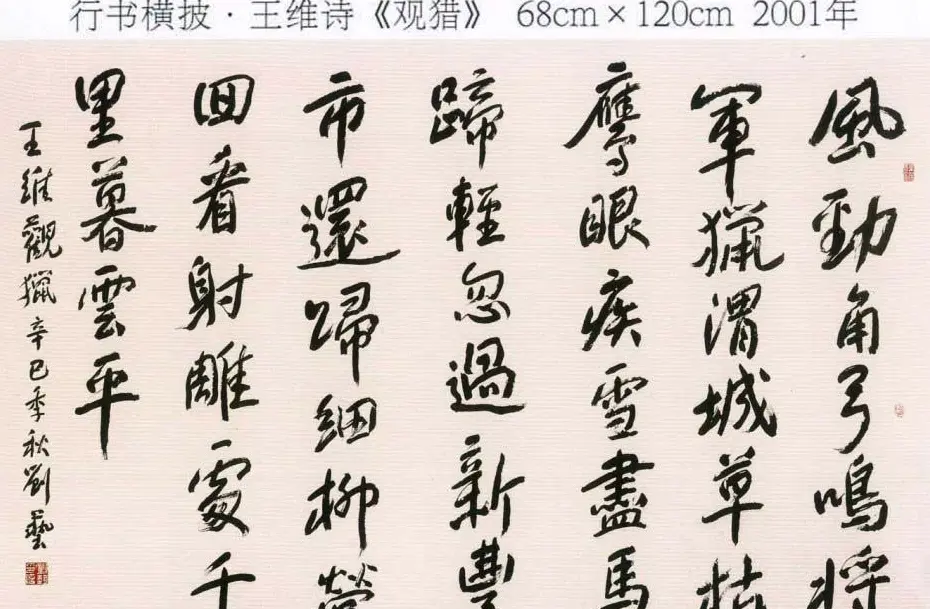 行书横披·王维诗《观猎》 68cm×120cm 2001年
風勁角弓鳴將
軍獵渭城草枯
鷹眼疾雪盡馬
蹄輕忽過新豐
市還歸細柳營
回看射雕處千
里暮雲平
王維觀獵辛巳季秋劉藝